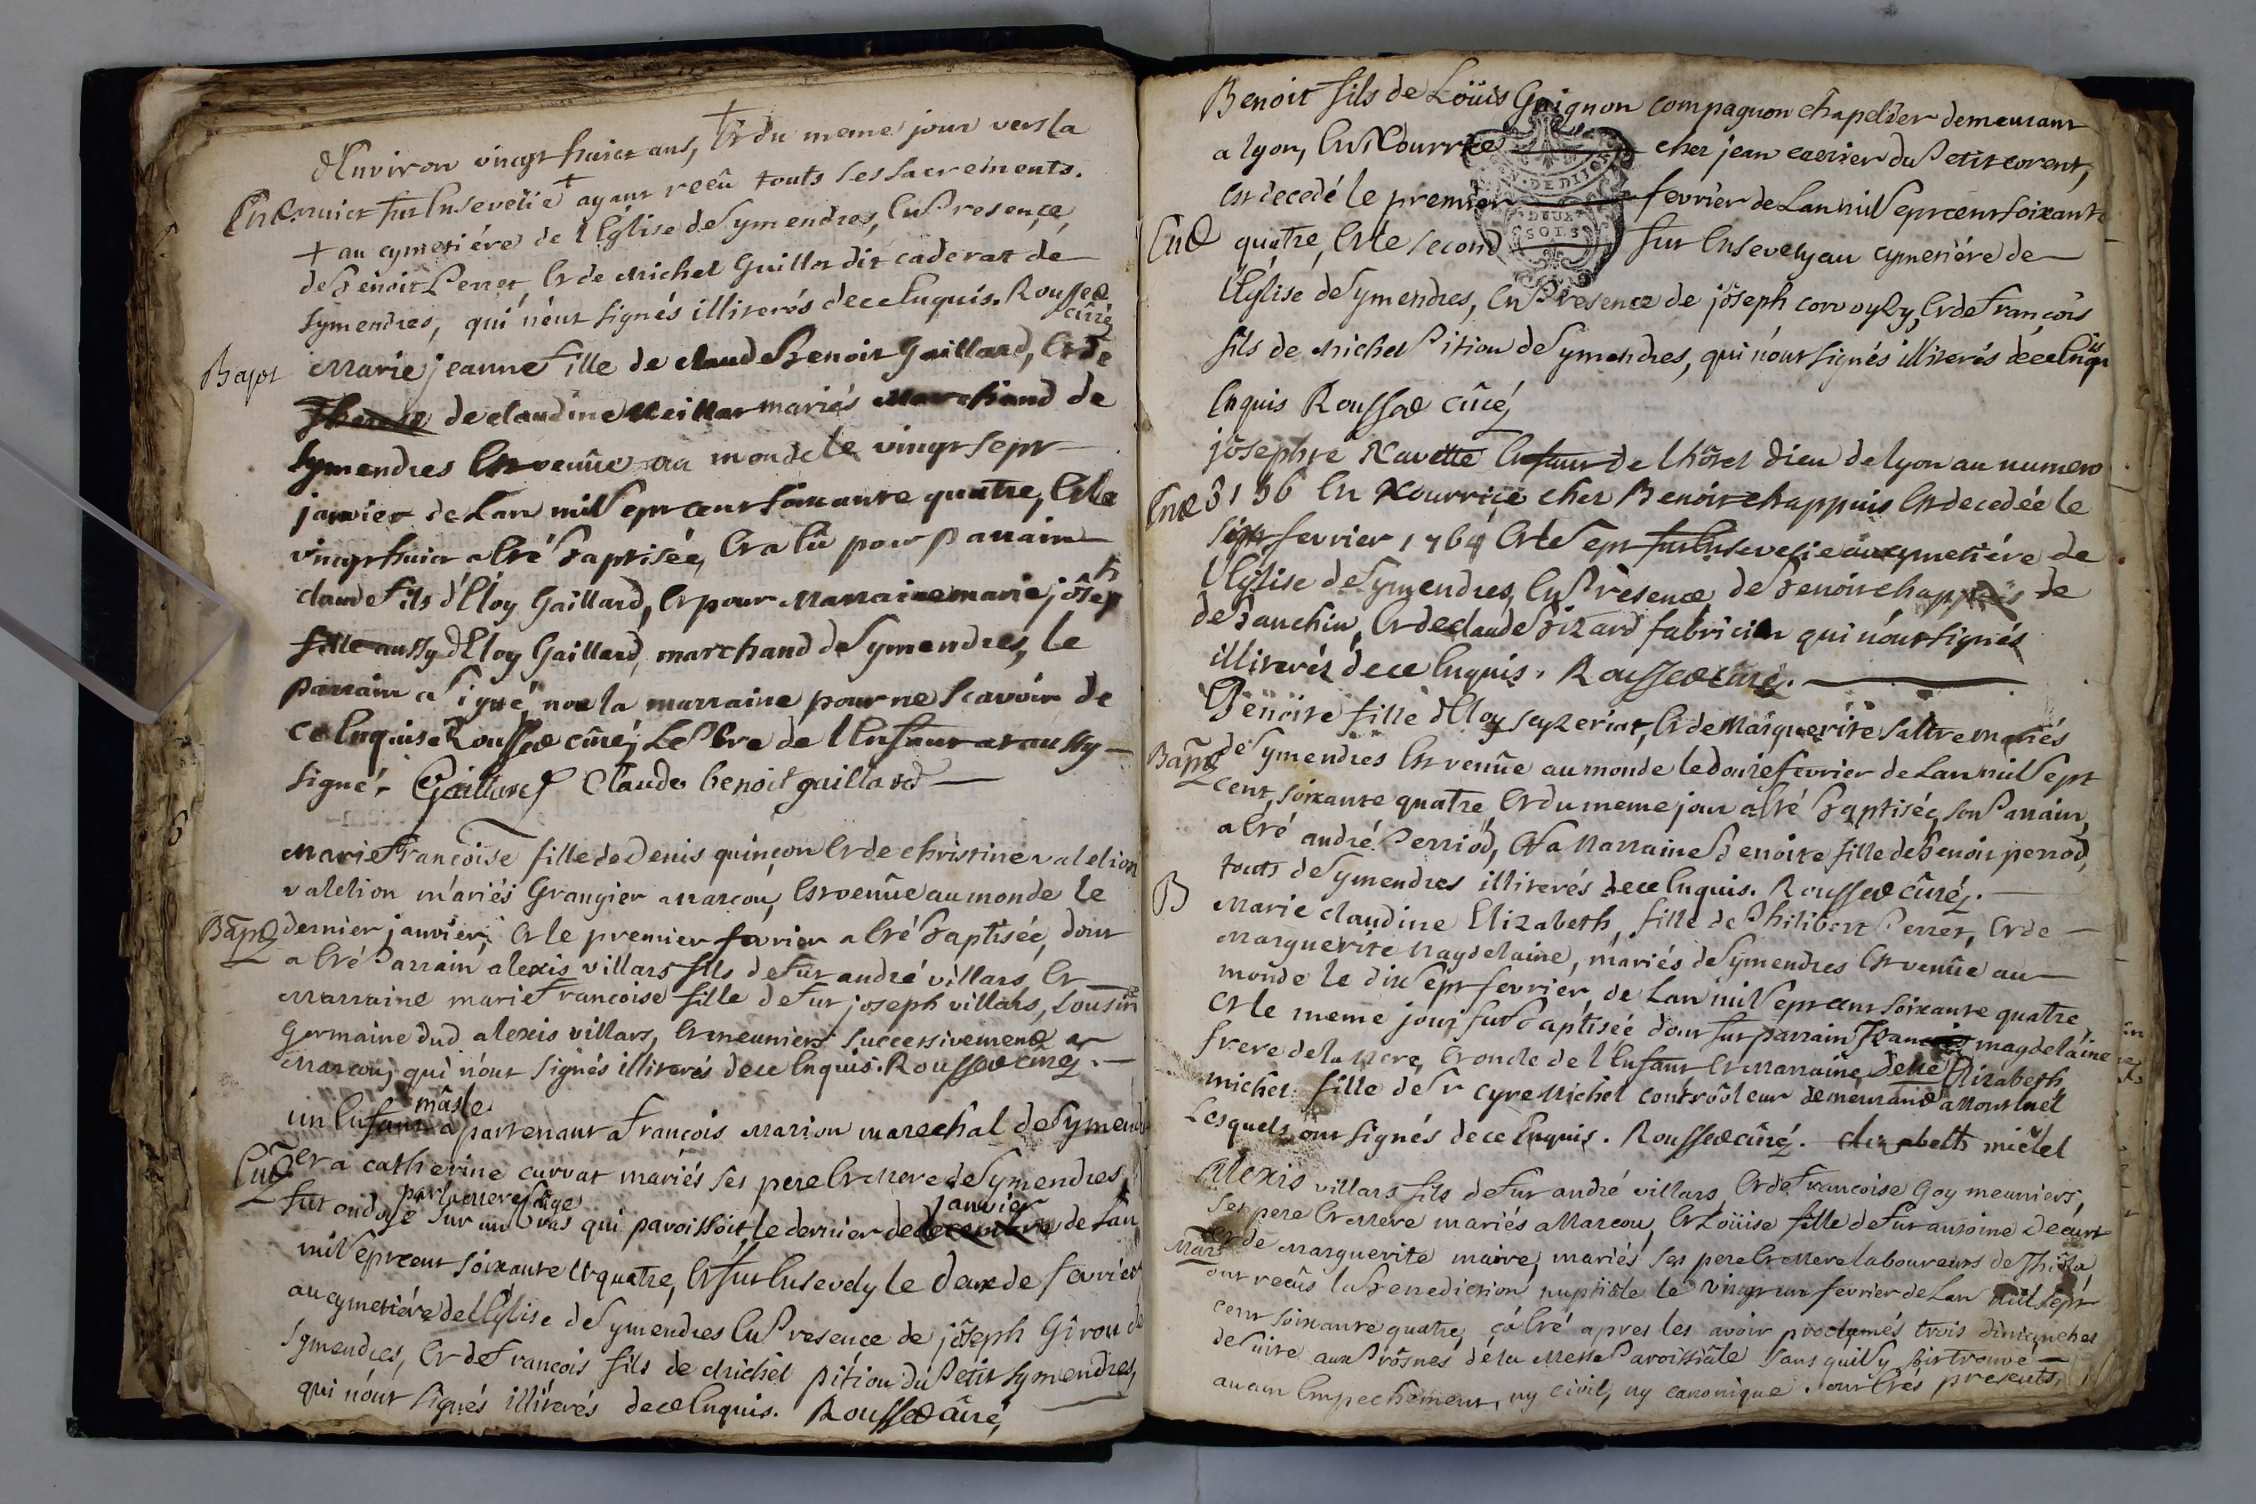 d'Environ vingt huict ans, + Et du meme jour vers la
Enterr minuict fut Ensevelie + ayant reçu touts les sacrements.
+ au cymetiére de l'Eglise de Symendres, En Presence
de Benoit Perret Et de Michel Guillot dit caderat de
Symendres, qui n'ont signés illiterés de ce Enquis. Roussed curé
Bapt Marie jeanne fille de claude Benoit Gaillard, Et de
de claudine Meillar mariés Marchand de
Symendres Est venüe au monde le vingt sept
janvier de L'an mil Sept cent soixante quatre, Et le
vingt huict a Eté Baptisée, Et a Eû pour Parrain
claude fils d'Eloy Gaillard, Et pour Marraine marie josep h
fille aussy d'Eloy Gaillard, marchand de Symendres, le
Parrain a Signé non la marraine pour ne Scavoir de
ce Enquise Roussed curé, Le Pere de l'Enfant at aussy
signé. Gaillard Claude benoit gaillard
Marie Francoise fille de Denis quinçon Et de christine valelion
valelion mariés Grangier a Marcou, Est venüe au monde le
Bapt dernier janvier, Et le premier fevrier a Eté Baptisée, dont
a Eté Parrain alexis villars fils de fut andré villars Et
Marraine marie Francoise fille de fut joseph villars, Cousine
Germaine dud alexis villars, Et meuniers successivement a
Marcou, qui n'ont signés illiterés de ce Enquis. Roussed curé.
mâsle
un Enfant apartenant a François Marion marechal de Symend
Ent et a catherine curvat mariés ses pere Et Mere de Symendres
par la Mere sage janvier
fut ondoyé sur un Bras qui paroissoit, le dernier de decembre de L'an
mil Sept cent soixante Et quatre, Et fut Ensevely le deux de fevrier
au cymetiére de l'Eglise de Symendres En Presence de jôseph Girou de
Symendres, Et de François fils de Michel pition du Petit Symendres,
qui n'ont signés illiterés de ce Enquis. Roussed curé
Benoit fils de Loüis Guignon compagnon chapelier demeurant
a lyon, En Nourrice chez jean carrier du Petit corent,
Est decedé le premier fevrier de L'an mil Sept cent soixante
Ent quatre, Et le second fut Ensevely au cymetiére de
l'Eglise de Symendres, En Presence de jôseph convoysy, Et de François
fils de Michel Pition de Symendres, qui n'ont signés illiterés de ce Enquis
Enquis Roussed curé
jôsephte Navette Enfant de l'hôtel dieu de lyon au numero
Ent 3136 En Nourrice chez Benoit chappuis Est decedée le
six fevrier 1764 Et le Sept fut Ensevelie au cymetiére de
l'Eglise de Symendres, En Presence de Benoit chappuis de
de Banchin, Et de claude Bizard fabricien qui n'ont signés
illiterés de ce Enquis. Roussed curé.
Benoite fille d'Eloy seyzeriat, Et de Marguerite Saltre mariés
Bapt de Symendres Est venüe au monde le douze fevrier de L'an mil Sept
cent soixante quatre Et du meme jour a Eté Baptisée, son Parrain
a Eté andré Perriod, Et la Marraine Benoite fille de Benoit perrod,
touts de Symendres illiterés de ce Enquis. Roussed curé.
B Marie claudine Elizabeth, fille de Philibert Perret, Et de
Marguerite Magdelaine, mariés de Symendres Est venüe au
monde le dix Sept fevrier de L'an mil Sept cent soixante quatre
Et le meme jour fut Baptisée dont fut parrain François magdelaine
frere de la Mere, Et oncle de l'Enfant Et Marraine delle Elizabeth
michel fille de Sr cyre Michel contrôoleur demeurand a Montluel
Lesquels ont signés de ce Enquis. Roussed curé. elizabeth michel
Alexis villars fils de fut andré villars Et de Francoise Goy meuniers,
ses pere Et Mere mariés a Marcou, Et Loüise fille de fut antoine Decurt
Mars Et de Marguerite maire, mariés ses pere Et Mere laboureurs de
ont reçus la Benediction nuptiâle le vingt un fevrier de L'an mil Sept
cent soixante quatre, ç'a Eté apres les avoir proclamés trois dimanches
de suite aux Prôsnes de la Messe Paroissiâle sans quil y soit trouvé
aucun Empechement, ny civil, ny canonique. ont Etés presents,